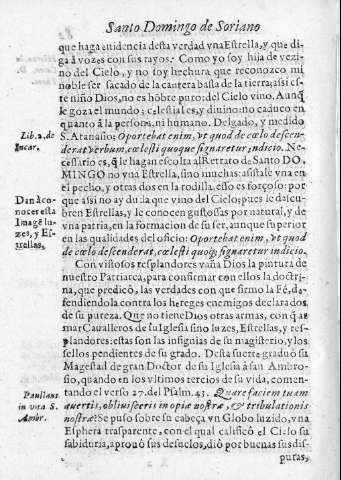 Santo Domingo de Soriano
que haga euidencia desta verdad vna Estrella, y que di-
ga à vozes con sus rayos. Como yo soy hija de vezi-
no del Cielo, y no soy hechura que reconozco mi
noble ser sacado de la cantera basta de la tierra; assi es-
te niño Dios, no es hõbre puro: del Cielo vino. Aunq̃
le goza el mundo; celestial es, y diuino: no caduco en
quanto à la persona, ni humano. Delgado, y medido
Lib. 2. de
Incar.
S. Atanasio: Oportebat enim, vt quod de cœlo descen-
derat verbum, cœlesti quoque signaretur indicio. Ne-
cessario es, q̃ le hagan escolta al Retrato de Santo DO-
MINGO no vna Estrella, sino muchas: assistale vna en
el pecho, y otras dos en la rodilla, esso es forçoso: por
Dan à co-
nocer esta
Image lu-
zes, y Es-
trellas,
que assi no ay duda que vino del Cielo; pues le descu-
bren Estrellas, y le conocen gustosas por natural, y de
vna patria, en la formacion de su ser, aunque superior
en las qualidades del oficio: Oportebat enim, vt quod
de cœlo descenderat, cœlesti quoq; signaretur indicio.
Con vistosos resplandores vaña Dios la pintura de
nuestro Patriarca, para confirmar con ellos la doctri-
na, que predicò, las verdades con que firmo la Fé, de-
fendiendola contra los hereges enemigos declarados,
de su pureza. Que no tiene Dios otras armas, con q̃ ar-
mar Caualleros de su Iglesia sino luzes, Estrellas, y res-
plandores: estas son las insignias de su magisterio, y los
sellos pendientes de su grado. Desta suerte graduò su
Magestad de gran Doctor de su Iglesia à san Ambro-
sio, quando en los vltimos tercios de su vida, comen-
Paulinus
in vita S.
Ambr.
tando el verso 27. del Psalm. 43. Quare faciem tuam
auertis, obliuisceris inopiæ nostræ, & tribulationis
nostræ? Se puso sobre su cabeça vn Globo luzido, vna
Esphera trasparente, con el qual calificò el Cielo su
sabiduria, aprouò sus desuelos, diò por buenas sus dis-
putas,